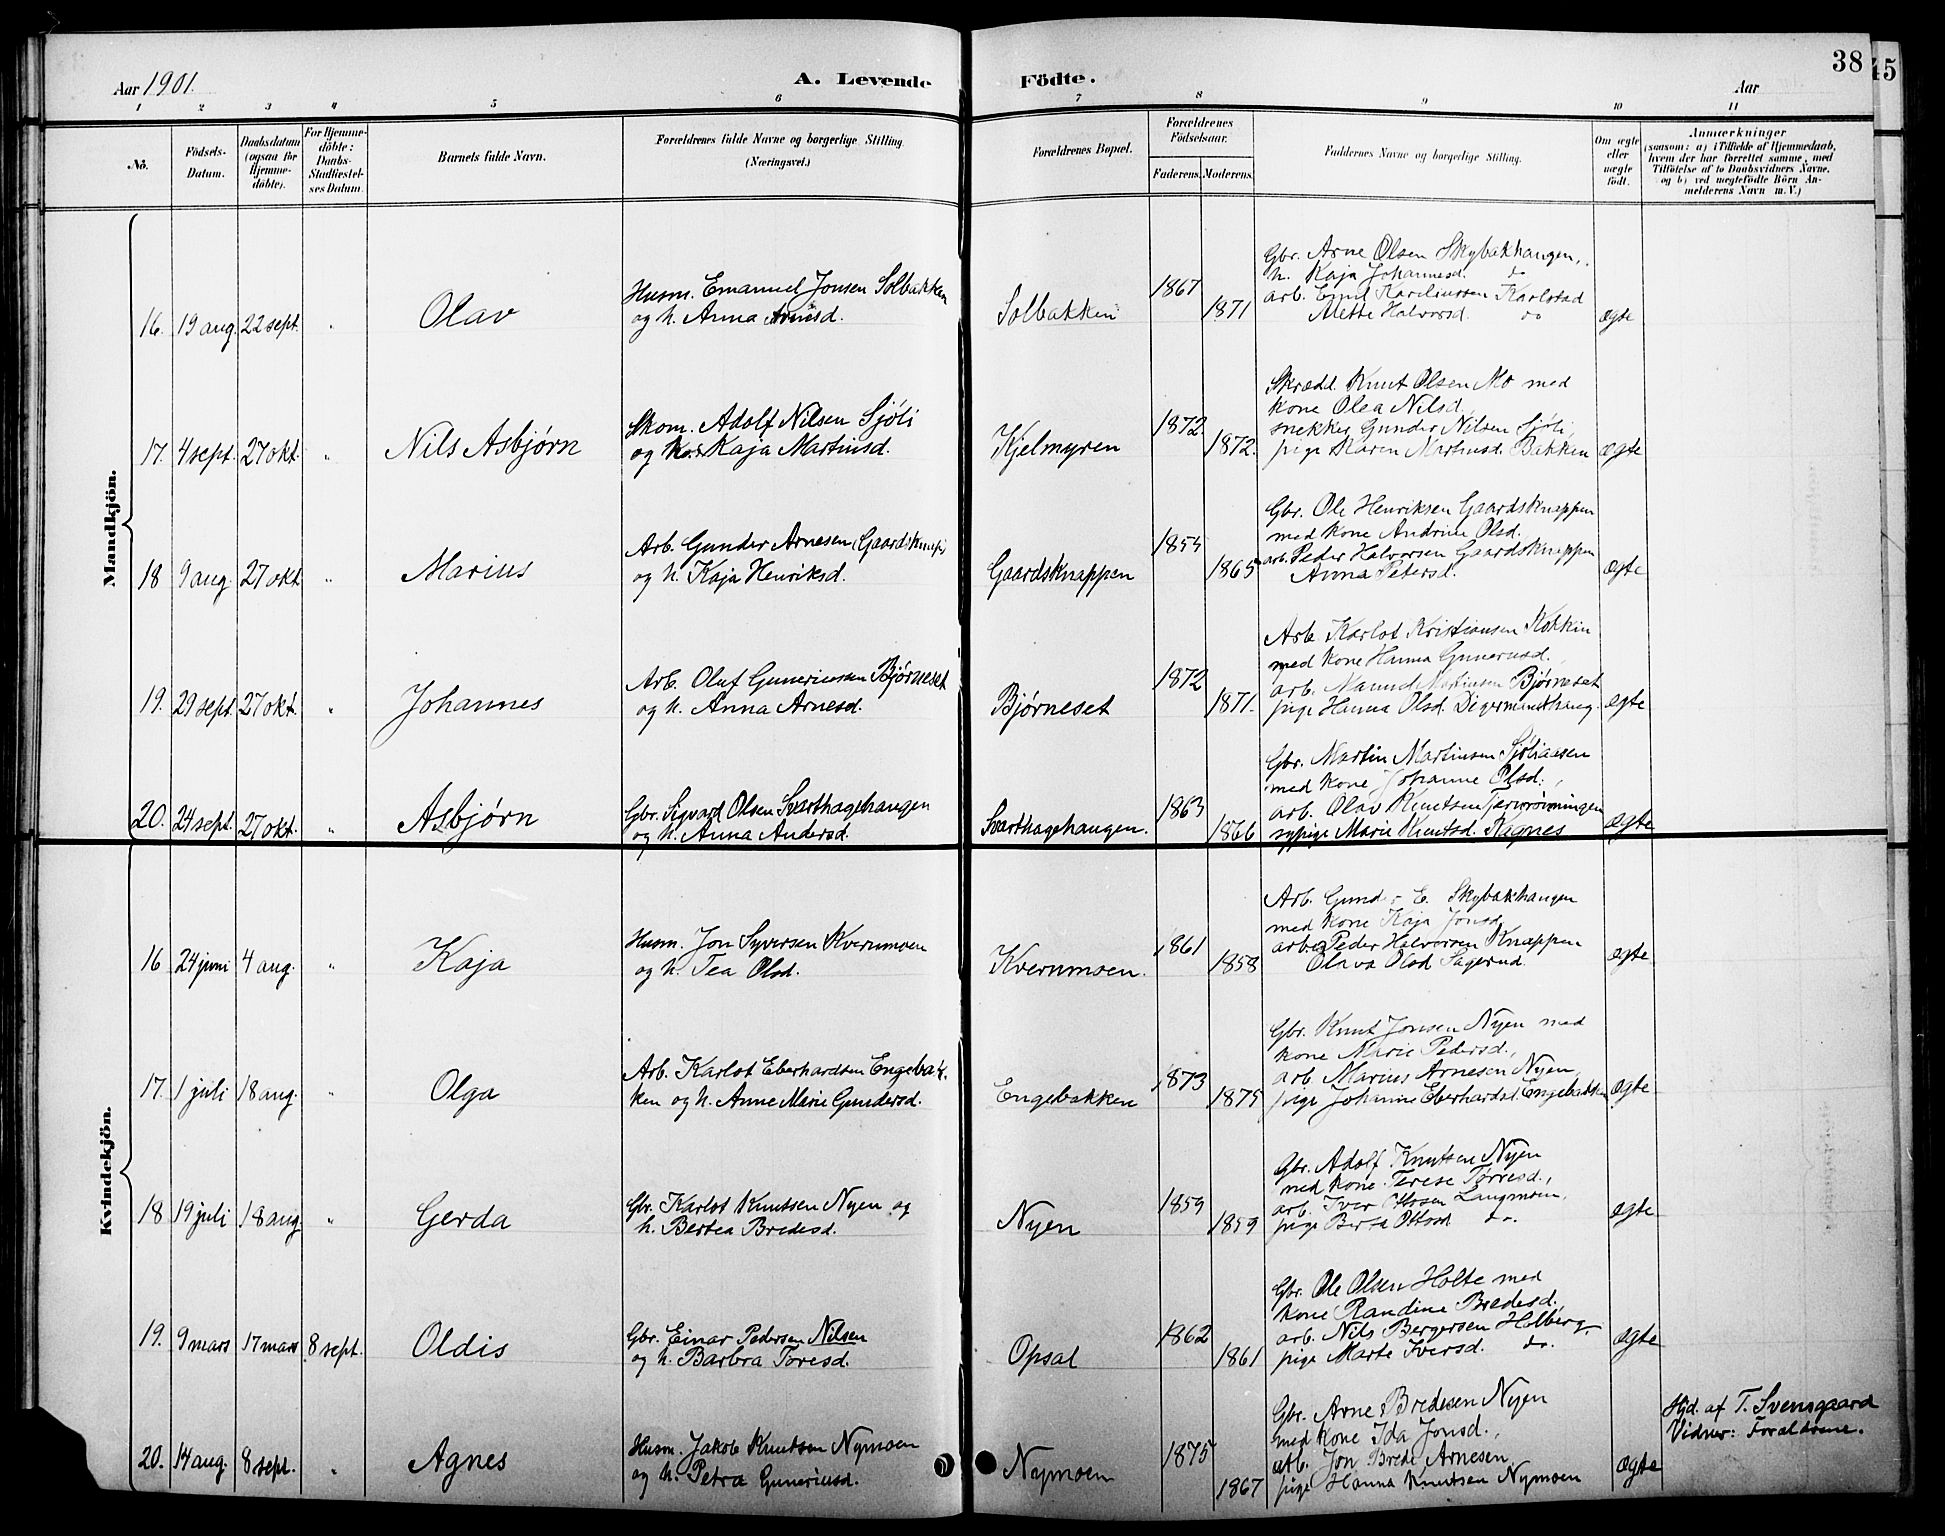 Aar 1901.
A. Levende
Födte.
Aar
38
45
1 2 3 4 5 6 7 8 9 10 11
No.
Födsels-
Datum.
Daabsdatum
(ogsaa for
Hjemme-
döbte).
For Hjemme-
döbte:
Daabs-
Stadfæstel-
ses Datum.
Barnets fulde Navn.
Forældrenes fulde Navne og borgerlige Stilling.
(Næringsvei.)
Forældrenes Bopæl.
Forældrenes
Födselsaar.
Faderens.
Moderens.
Faddernes Navne og borgerlige Stilling.
Om ægte
eller
uægte
födt.
Anmærkninger
(saasom: a) i Tilfælde af Hjemmedaab,
hvem der har forrettet samme, med
Tilföielse af to Daabsvidners Navne,
og b) ved uægtefödte Börn An-
melderens Navn m. V.)
Mandkjön.
16. 19 aug. 22 sept. " Olav
Husm. Emanuel Jonsen Solbakken
og h. Anna Arnesd.
Solbakken 1867 1871
Gbr. Arne Olsen Skybakhaugen,
h. Kaja Johannesd. do
arb. Emil Kareliussen Karlstad
Alette Halvorsd. do
ægte
17. 4 sept. 27 okt. " Nils Asbjørn
Skom. Adolf Nilsen Sjöli
og Kaja Martinsd.
Kjelmyren 1872 1872.
Skrædd. Knut Olsen Mo med
kone Olea Nilsd,
snekker Gunder Nilsen Sjöli,
pige Karen Martinsd. Bakken
ægte
18 9 aug. 27 okt " Marius
Arb. Gunder Arnesen (Gaardsknap)
og h. Kaja Henriksd.
Gaardsknappen 1855 1865
Gbr. Ole Henriksen Gaardsknappen
med kone Andrine Olsd.
arb. Peder Halvorsen Gaardsknappen
Anna Petersd.
ægte
19. 29 sept. 27 okt. " Johannes
Arb. Oluf Guneriussen Bjørneset
og h. Anna Arnesd.
Bjørneset 1872 1871.
Arb. Karlot Kristiansen Kokkin
med kone Hanna Gunerusd.,
arb. Martinsen Bjørneset
pige Hanna Olsd. Digermundshaug.
ægte
20. 24 sept. 27 okt. " Asbjørn
Gbr. Sigvard Olsen Svarthagehaugen
og h. Anna Andersd.
Svarthagehaugen. 1863 1866
Gbr. Martin Martinsen Sjöliaasen
med kone Johanne Olsd.,
arb. Olav Knutsen
sypige Marie Knutsd. Kagnes
ægte
Kvindekjön.
16 24 juni 4 aug. " Kaja
Husm. Jon Syversen Kvernmoen
og h. Tea Olsd.
Kvernmoen. 1861 1858
Arb. Gunder E. Skybakhaugen
med kone Kaja Jonsd,
arb. Peder Halvorsen Knappen
Olava Olsd Sagerud.
ægte
17. 1 juli 18 aug. " Olga
Arb. Karlot Eberhardsen Engebak-
ken og h. Anne Marie Gundersd.
Engebakken 1873 1875
Gbr. Knut Jonsen Nyen med
kone Marie Pedersd.,
arb. Marius Arnesen Nyen,
pige Johanne Eberhardsd. Engebakken
ægte
18 19 juli 18 aug. " Gerda
Gbr. Karlot Knutsen Nyen og
h. Bertea Bredesd.
Nyen 1859 1859
Gbr. Adolf Knutsen Nyen
med kone Terese Torresd.,
arb. Iver Ottosen Langmoen,
pige Berta Ottosd do.
ægte
19. 9 mars 17 mars 8 sept. Oldis
Gbr. Einar Pedersen Nilsen
og h. Barbra Toresd.
Opsal 1862 1861
Gbr. Ole Olsen Holte med
kone Randine Bredesd.
arb. Nils Bergersen Holberg,
pige Marte Iversd. do.
ægte
Hjd. af T. Svensgaard
Vidner: Forældrene.
20. 14 aug. 8 sept. " Agnes
Husm. Jakob Knutsen Nymoen
og h. Petra Guneriusd.
Nymoen 1875 1867
Gbr. Arne Bredesen Nyen
med kone Ida Jonsd.,
arb. Jon Brede Arnesen,
pige Hanna Knutsen Nymoen
ægte